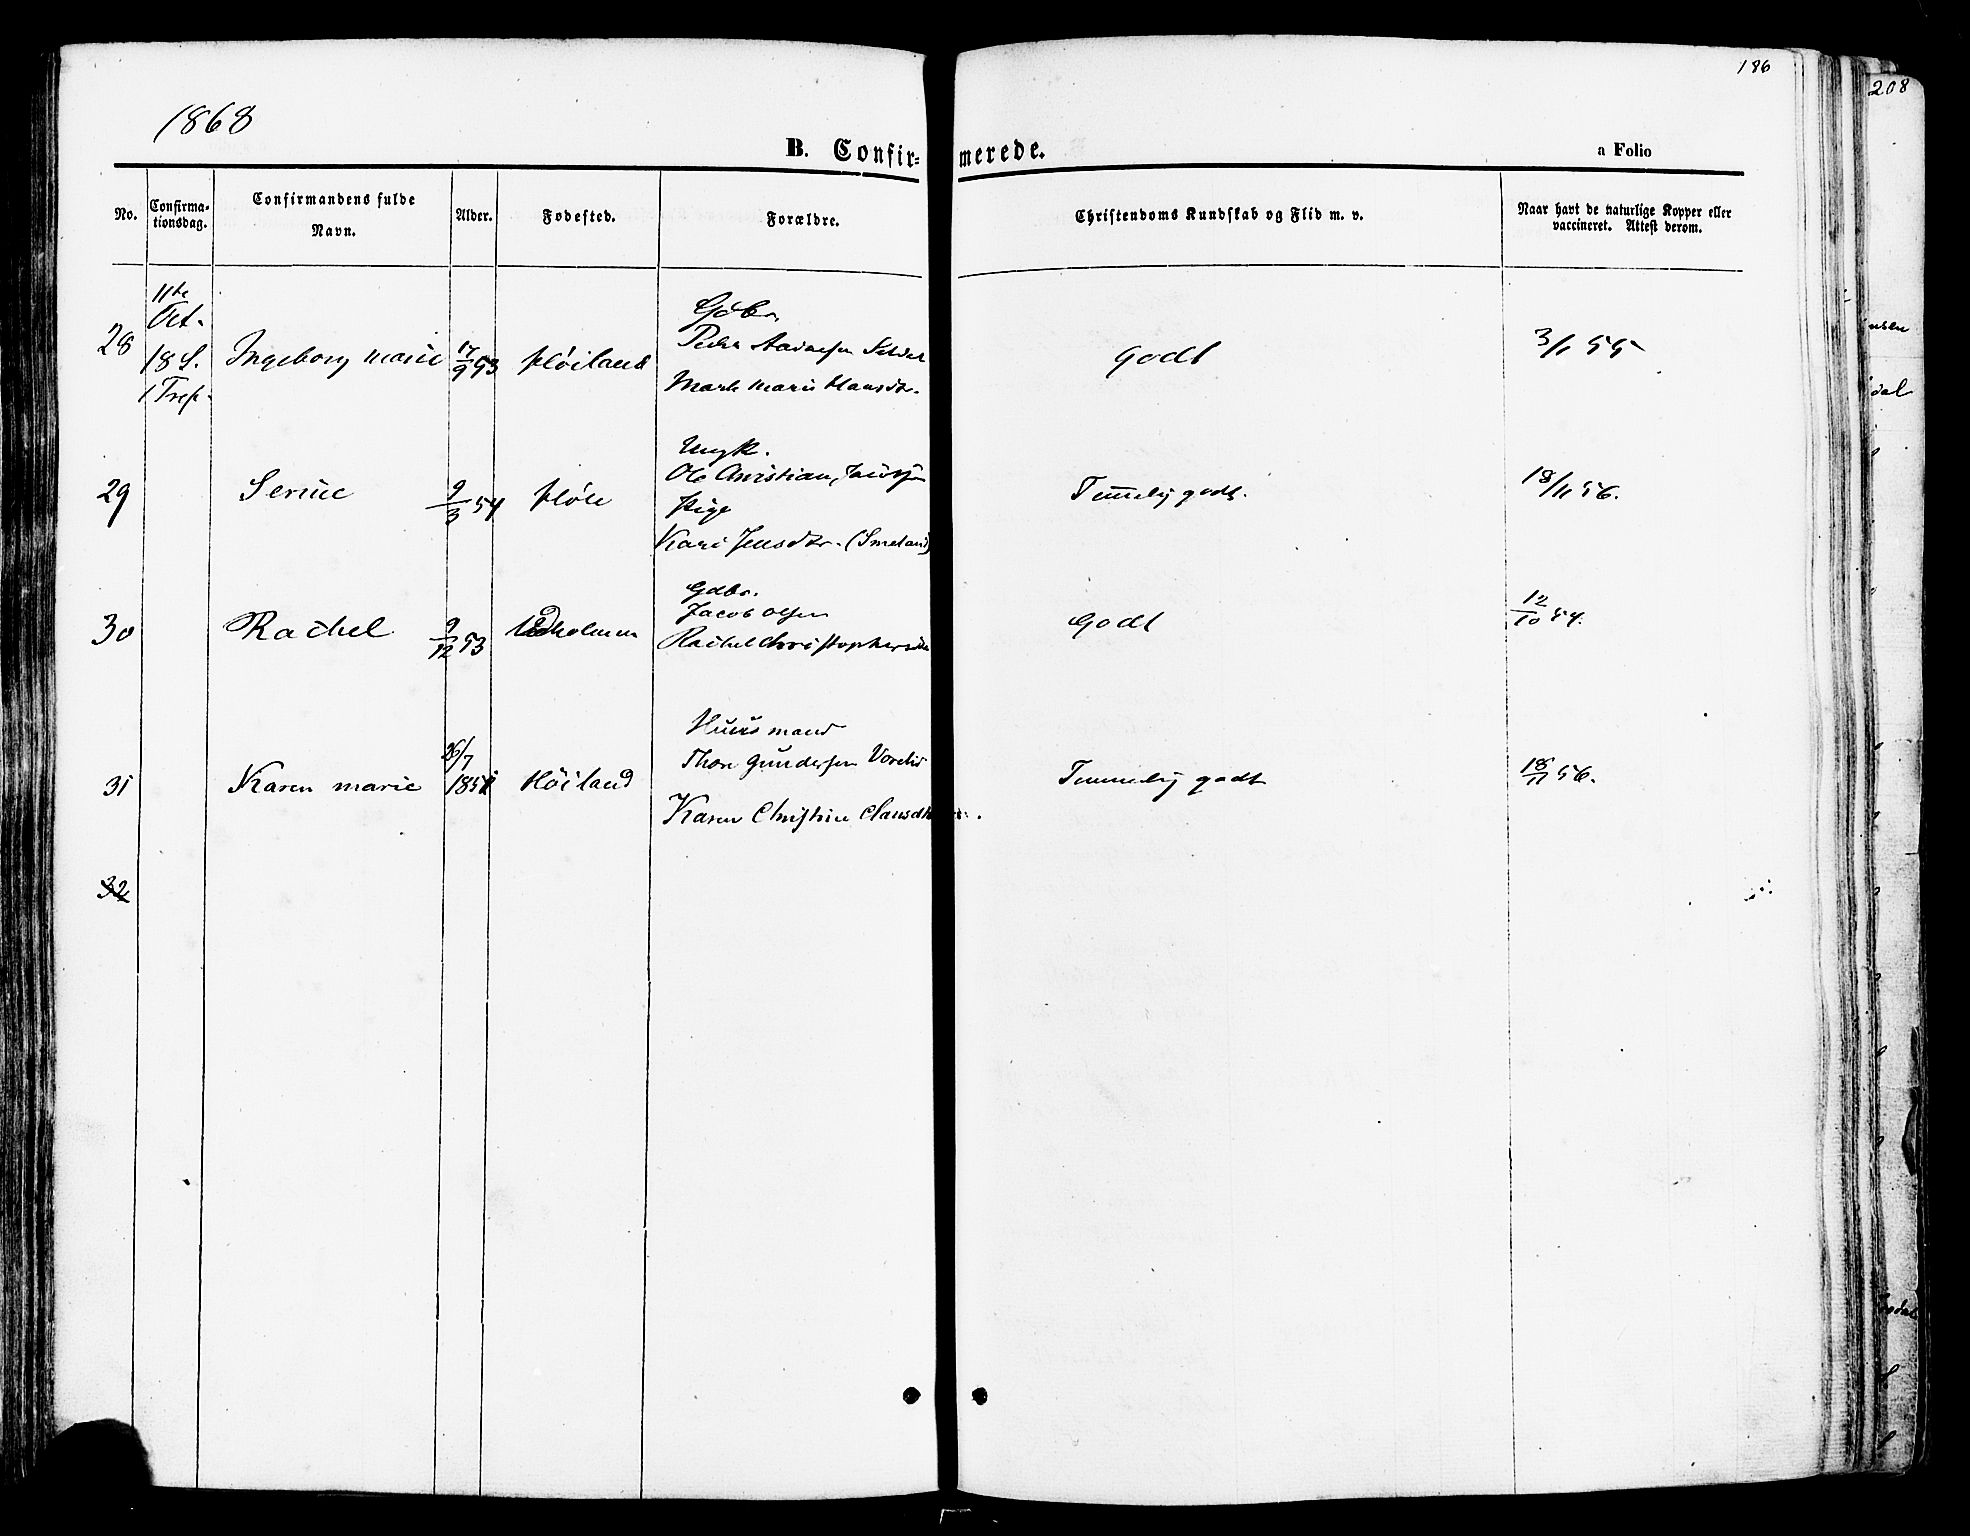 186
208
1868
B. Confir- merede.
a Folio
No.
Confirma-
tionsdag.
Confirmandens fulde
Navn.
Alder.
Fødested.
Forældre.
Christendoms Kundskab og Flid m. v.
Naar havt de naturlige Kopper eller
vaccineret. Attest derom.
28
11te
Oct.
18 S.
Tref.
Ingeborg Marie
17/9 53
Høiland
Gdbr.
Peder Aadnesen
Marte Marie Hansdr.
Godt
3/1 55
29
Serine
9/3 54
Høle
Ungk.
Ole Christian
Pige
Kari Jensdtr. (Smeland)
Temmelig godt.
18/11 56.
30
Rachel
9/12 53
Gdbr.
Jacob Olsen
Rachel Christophersdtr
Godt
12/10 54.
31
Karen Marie
26/7
1851
Høiland
Huusmand
Thore Gundersen
Karen Christine Clausdtr.
Temmelig godt
18/11 56.
32